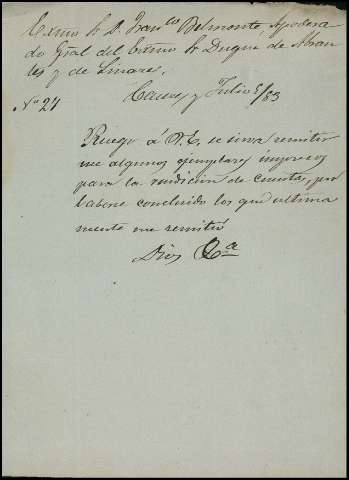 Exmo Sr D. Franco Belmonte, Apodera
do Gral del Exmo Sr Duque de Abran
tes y de Linares.
Nº 27
Caceres y Julio 5/83
Ruego á V.E. se sirva remitir
me algunos ejemplares impresos
para la rendicion de cuentas, por
haberse concluido los que ultima
mente me remitió
Dios &a